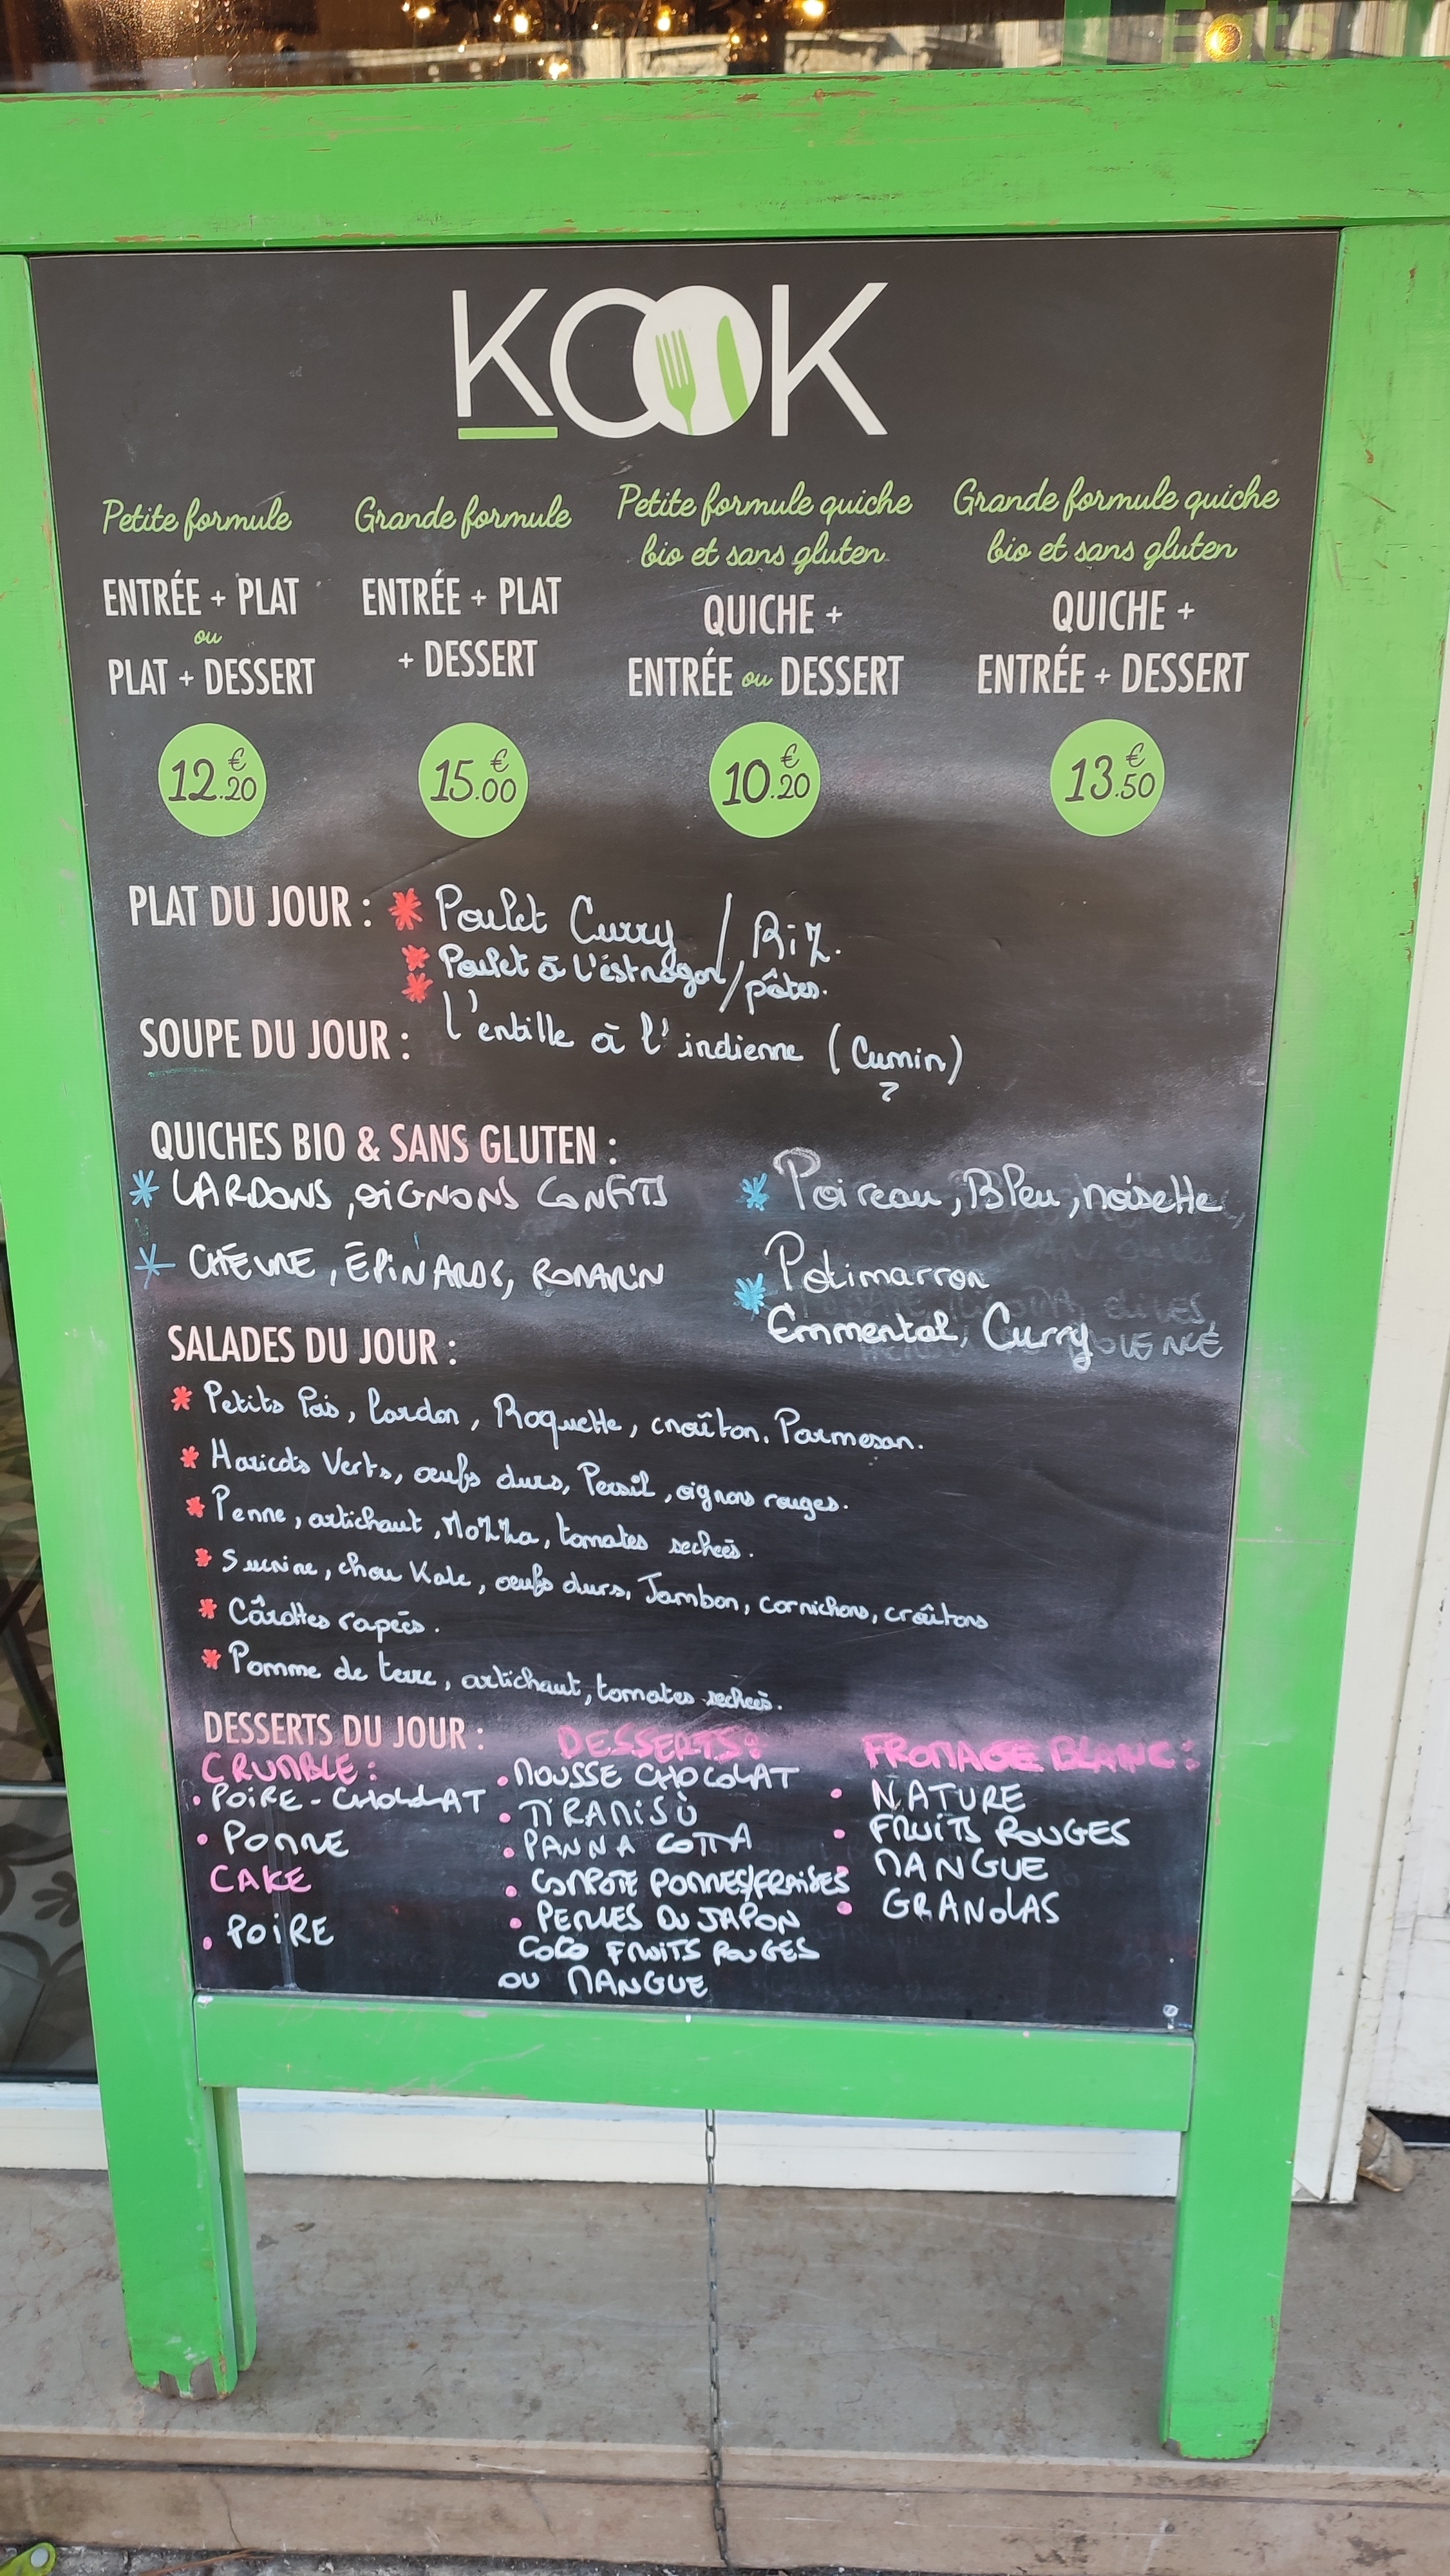 Eats
KOOK
Petite formule
ENTRÉE + PLAT
ou
PLAT + DESSERT
12.€20
Grande formule
ENTRÉE + PLAT
+ DESSERT
15.€00
Petite formule quiche
bio et sans gluten
QUICHE +
ENTRÉE ou DESSERT
10.€20
Grande formule quiche
bio et sans gluten
QUICHE +
ENTRÉE + DESSERT
13.€50
PLAT DU JOUR : * Poulet Curry / Riz.
* Poulet à l'éstragon/pâtes.
*
SOUPE DU JOUR : l'entille à l'indienne (Cumin)
QUICHES BIO & SANS GLUTEN :
* LARDONS, OIGNONS CONFITS
* CHÈVRE, ÉPINARDS, ROMARIN
* Poireau, Bleu, noisette
* Potimarron
Emmental, Curry
SALADES DU JOUR :
* Petits Pois, lardon, Roquette, croûton, Parmesan.
* Haricots Verts, œufs durs, Persil, oignons rouges.
* Penne, artichaut, Mozza, tomates sechées.
* Sucrine, chou Kale, œufs durs, Jambon, cornichons, croûtons
* Cârottes rapées.
* Pomme de terre, artichaut, tomates sechées.
DESSERTS DU JOUR :
CRUMBLE :
• POIRE - CHOCOLAT
• POMME
CAKE
• POIRE
DESSERTS :
• MOUSSE CHOCOLAT
• TIRAMISÙ
• PANNA COTTA
• COMPOTE POMMES/FRAISES
• PERLES DU JAPON
COCO FRUITS ROUGES
OU MANGUE
FROMAGE BLANC :
• NATURE
• FRUITS ROUGES
• MANGUE
• GRANOLAS